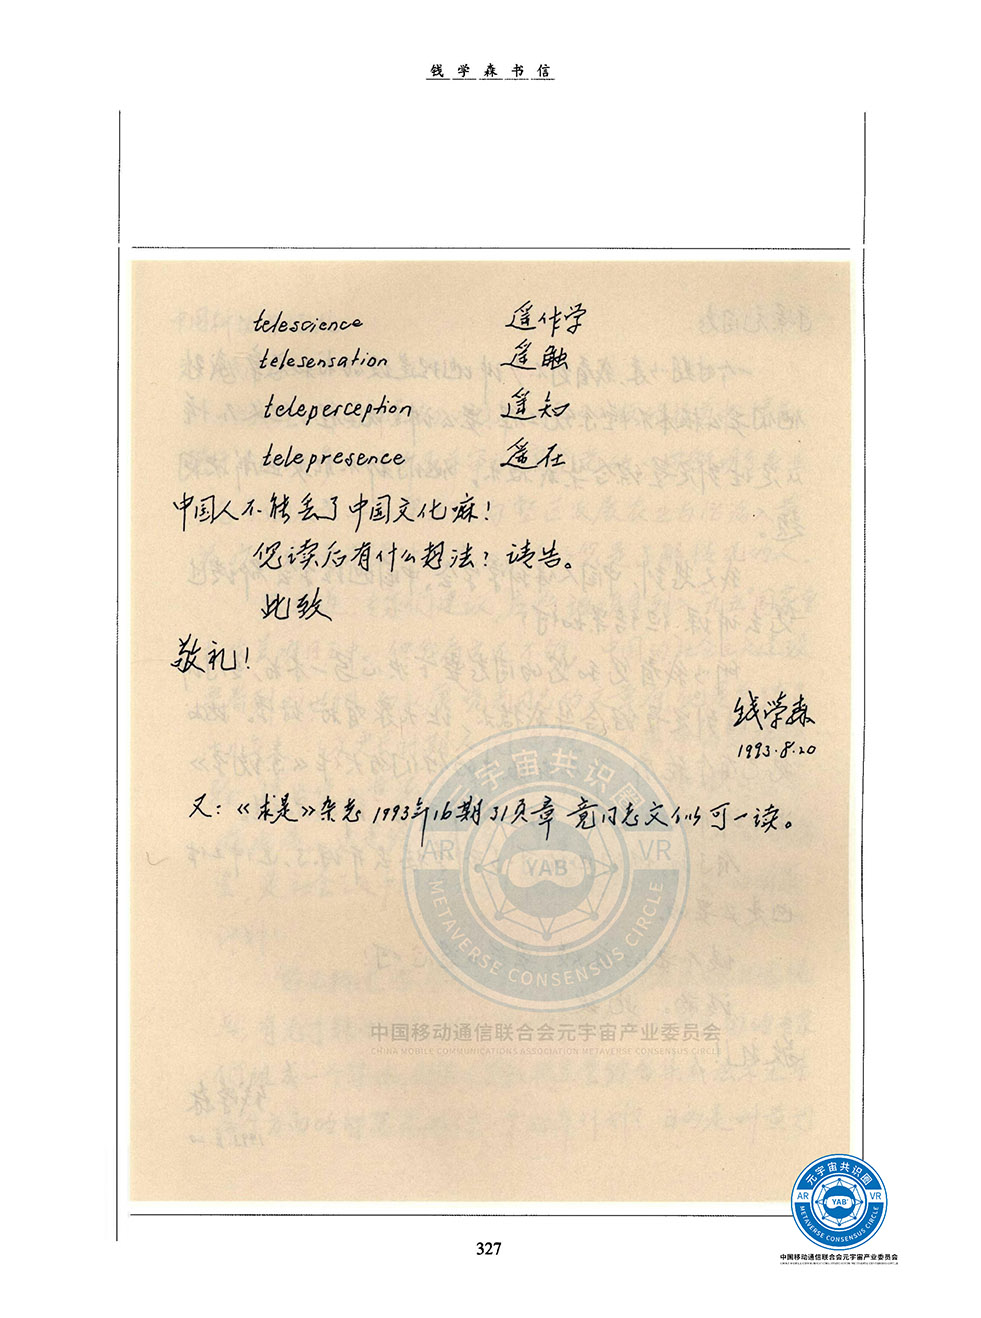 钱学森书信
telescience 遥作学
telesensation 遥触
teleperception 遥知
telepresence 遥在
中国人不能丢了中国文化嘛!
您读后有什么想法?请告。
此致
敬礼!
钱学森
1993.8.20
又:《求是》杂志1993年16期31页章竟同志文似可一读。
元宇宙共识圈
AR YAB VR
METAVERSE CONSENSUS CIRCLE
中国移动通信联合会元宇宙产业委员会
CHINA MOBILE COMMUNICATIONS ASSOCIATION METAVERSE CONSENSUS CIRCLE
327
元宇宙共识圈
AR YAB VR
METAVERSE CONSENSUS CIRCLE
中国移动通信联合会元宇宙产业委员会